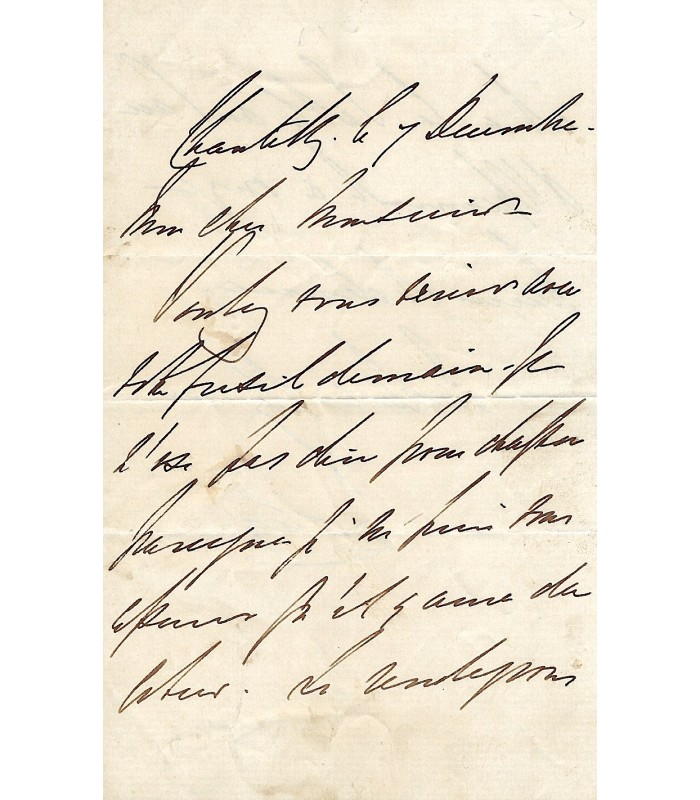 Chantilly. le 7 Decembre.
Mon cher Monsieur
Voulez vous venir avec
votre fusil demain. Je
n'ose pas dire pour chasser
parceque je ne puis vous
assurer qu'il y aura du
. Le rendezvous